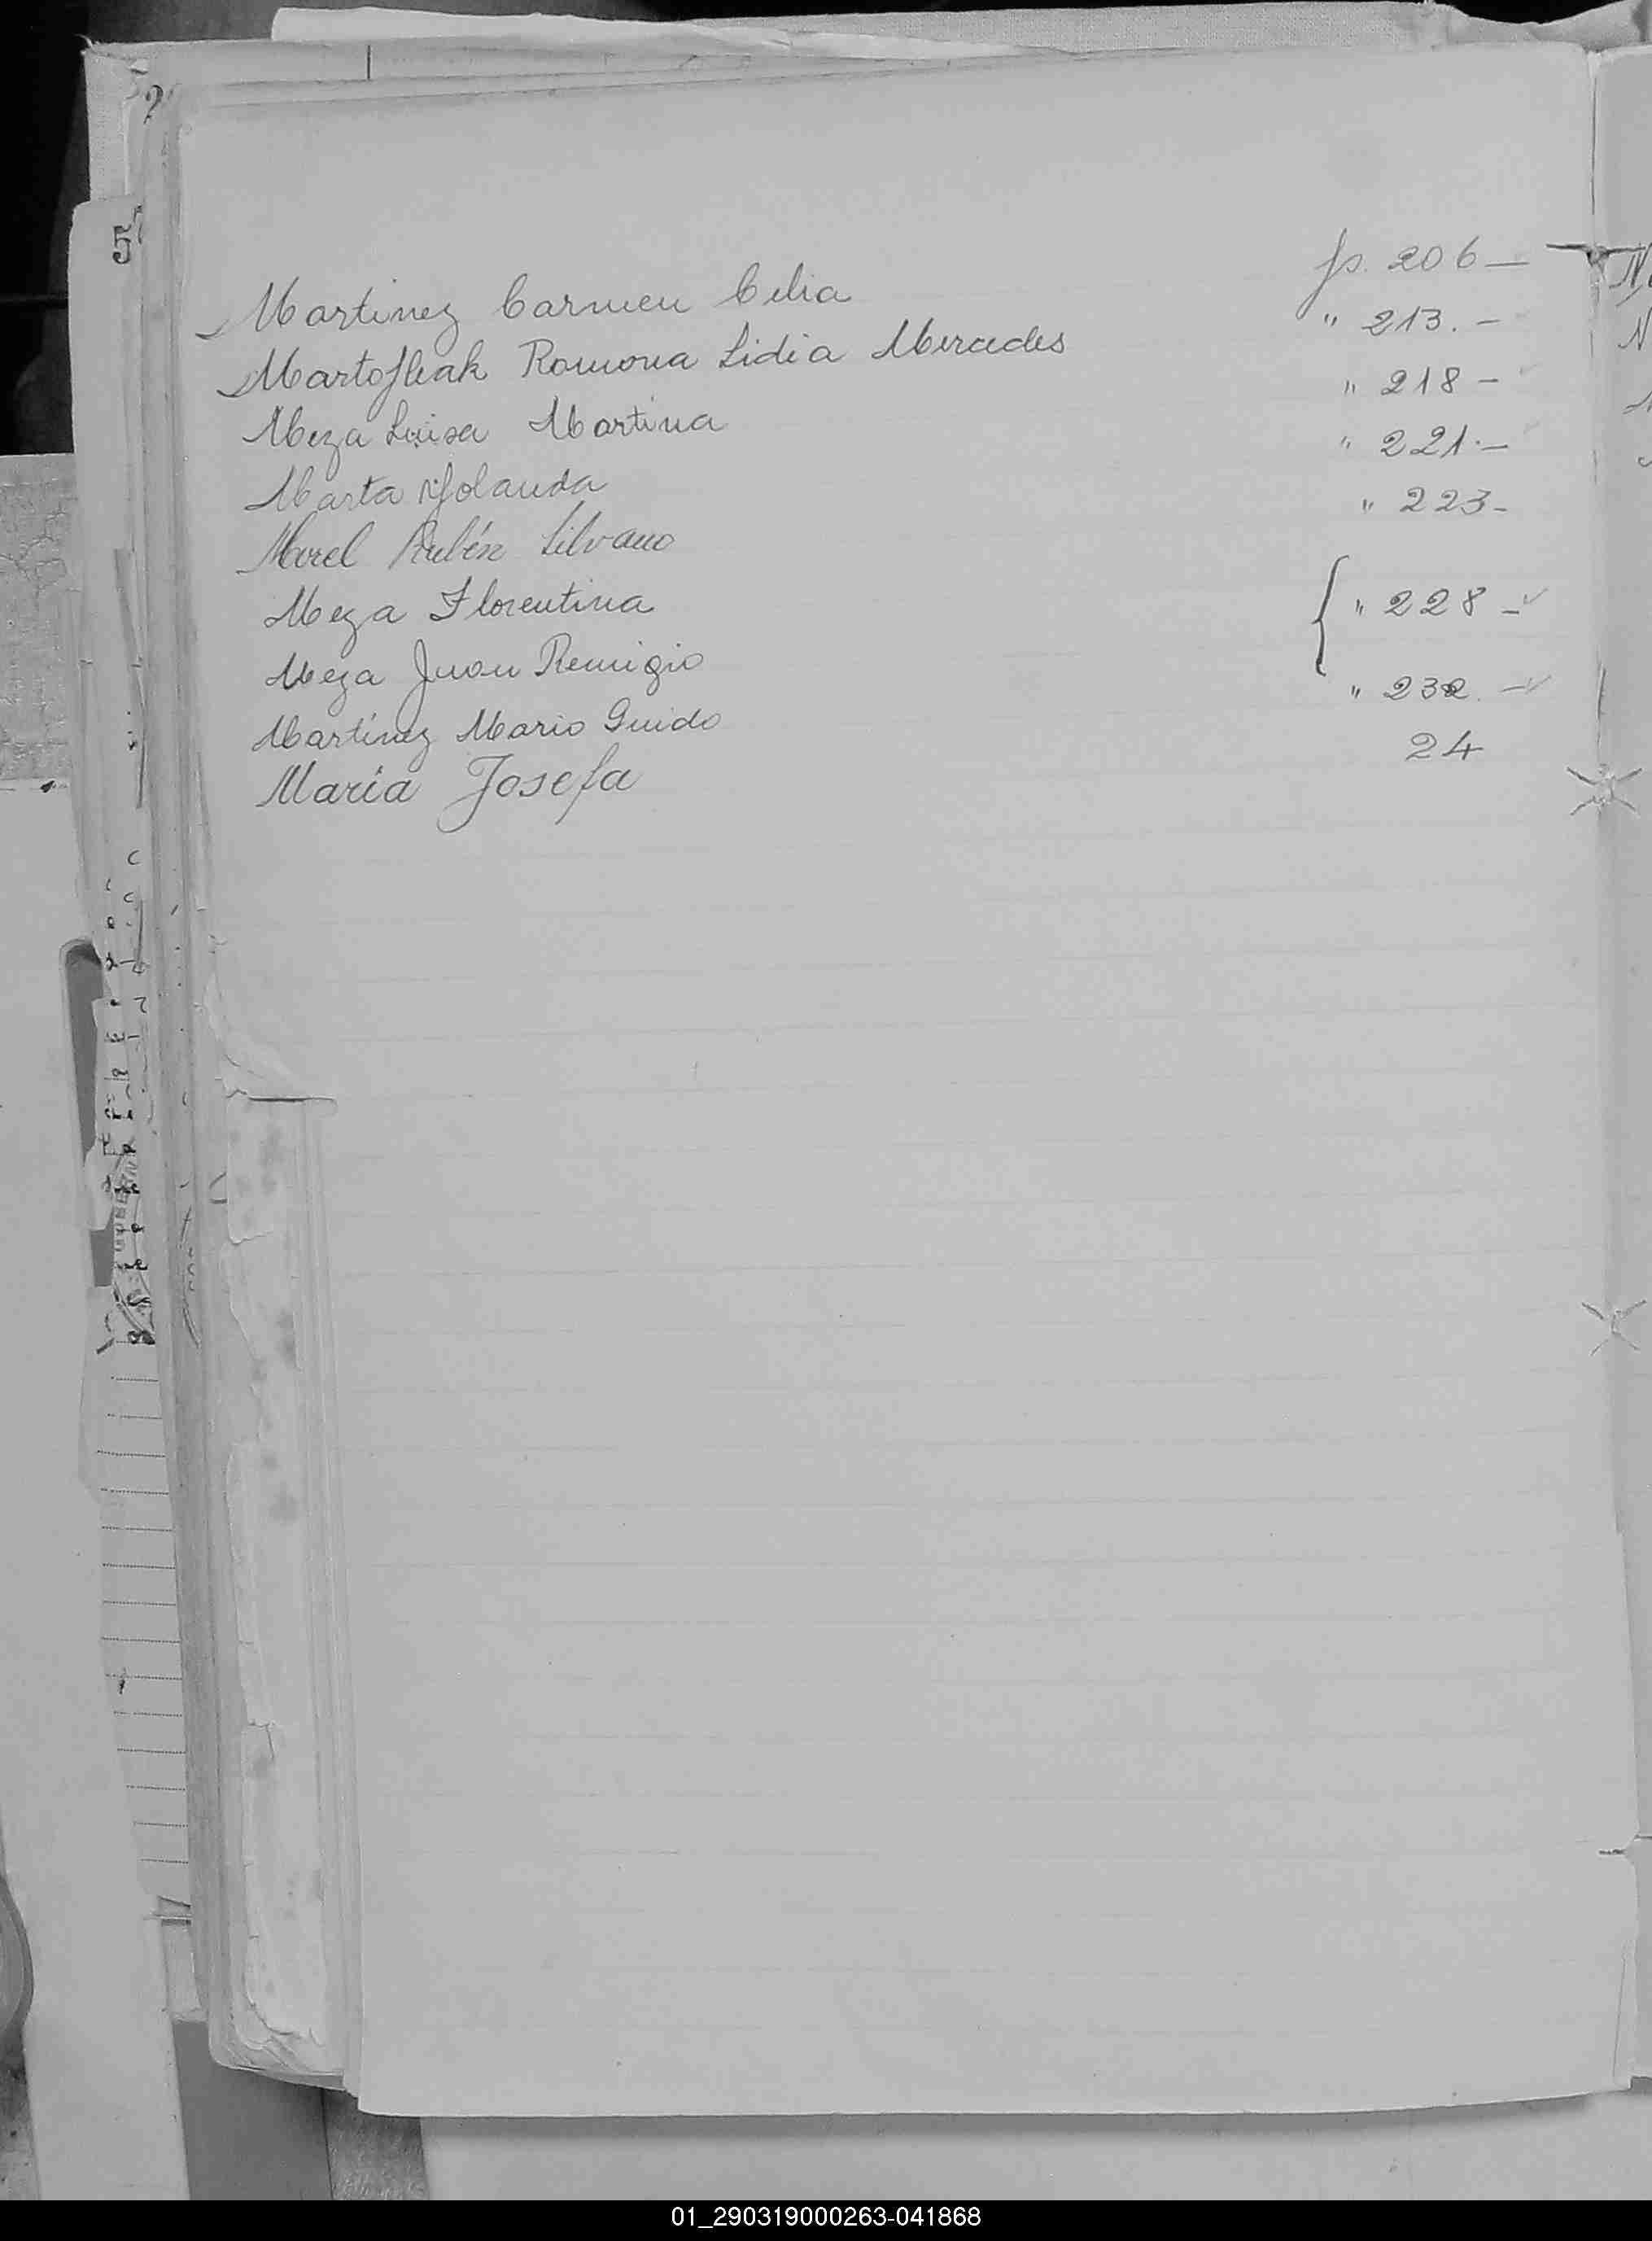 Martinez Carmen Celia fs. 206 —
Martofleak Ramona Lidia Mercedes " 213. —
Meza Luisa Martina " 218 —
Marta Yolanda " 221. —
Morel Rubén Silvano " 223 -
Meza Florentina { " 228 —
Meza Juan Remigio
Martínez Mario Guido " 232. —
María Josefa 24
5
01_290319000263-041868